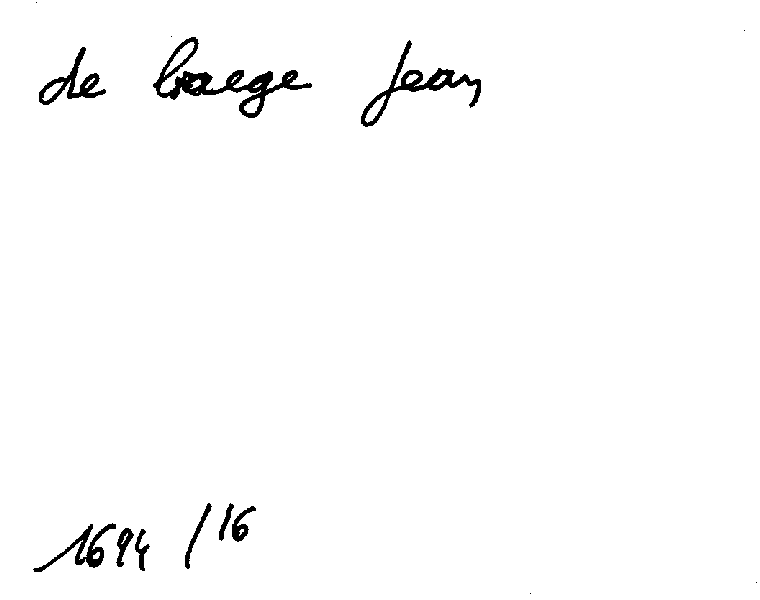 de braege Jean
1694 /16